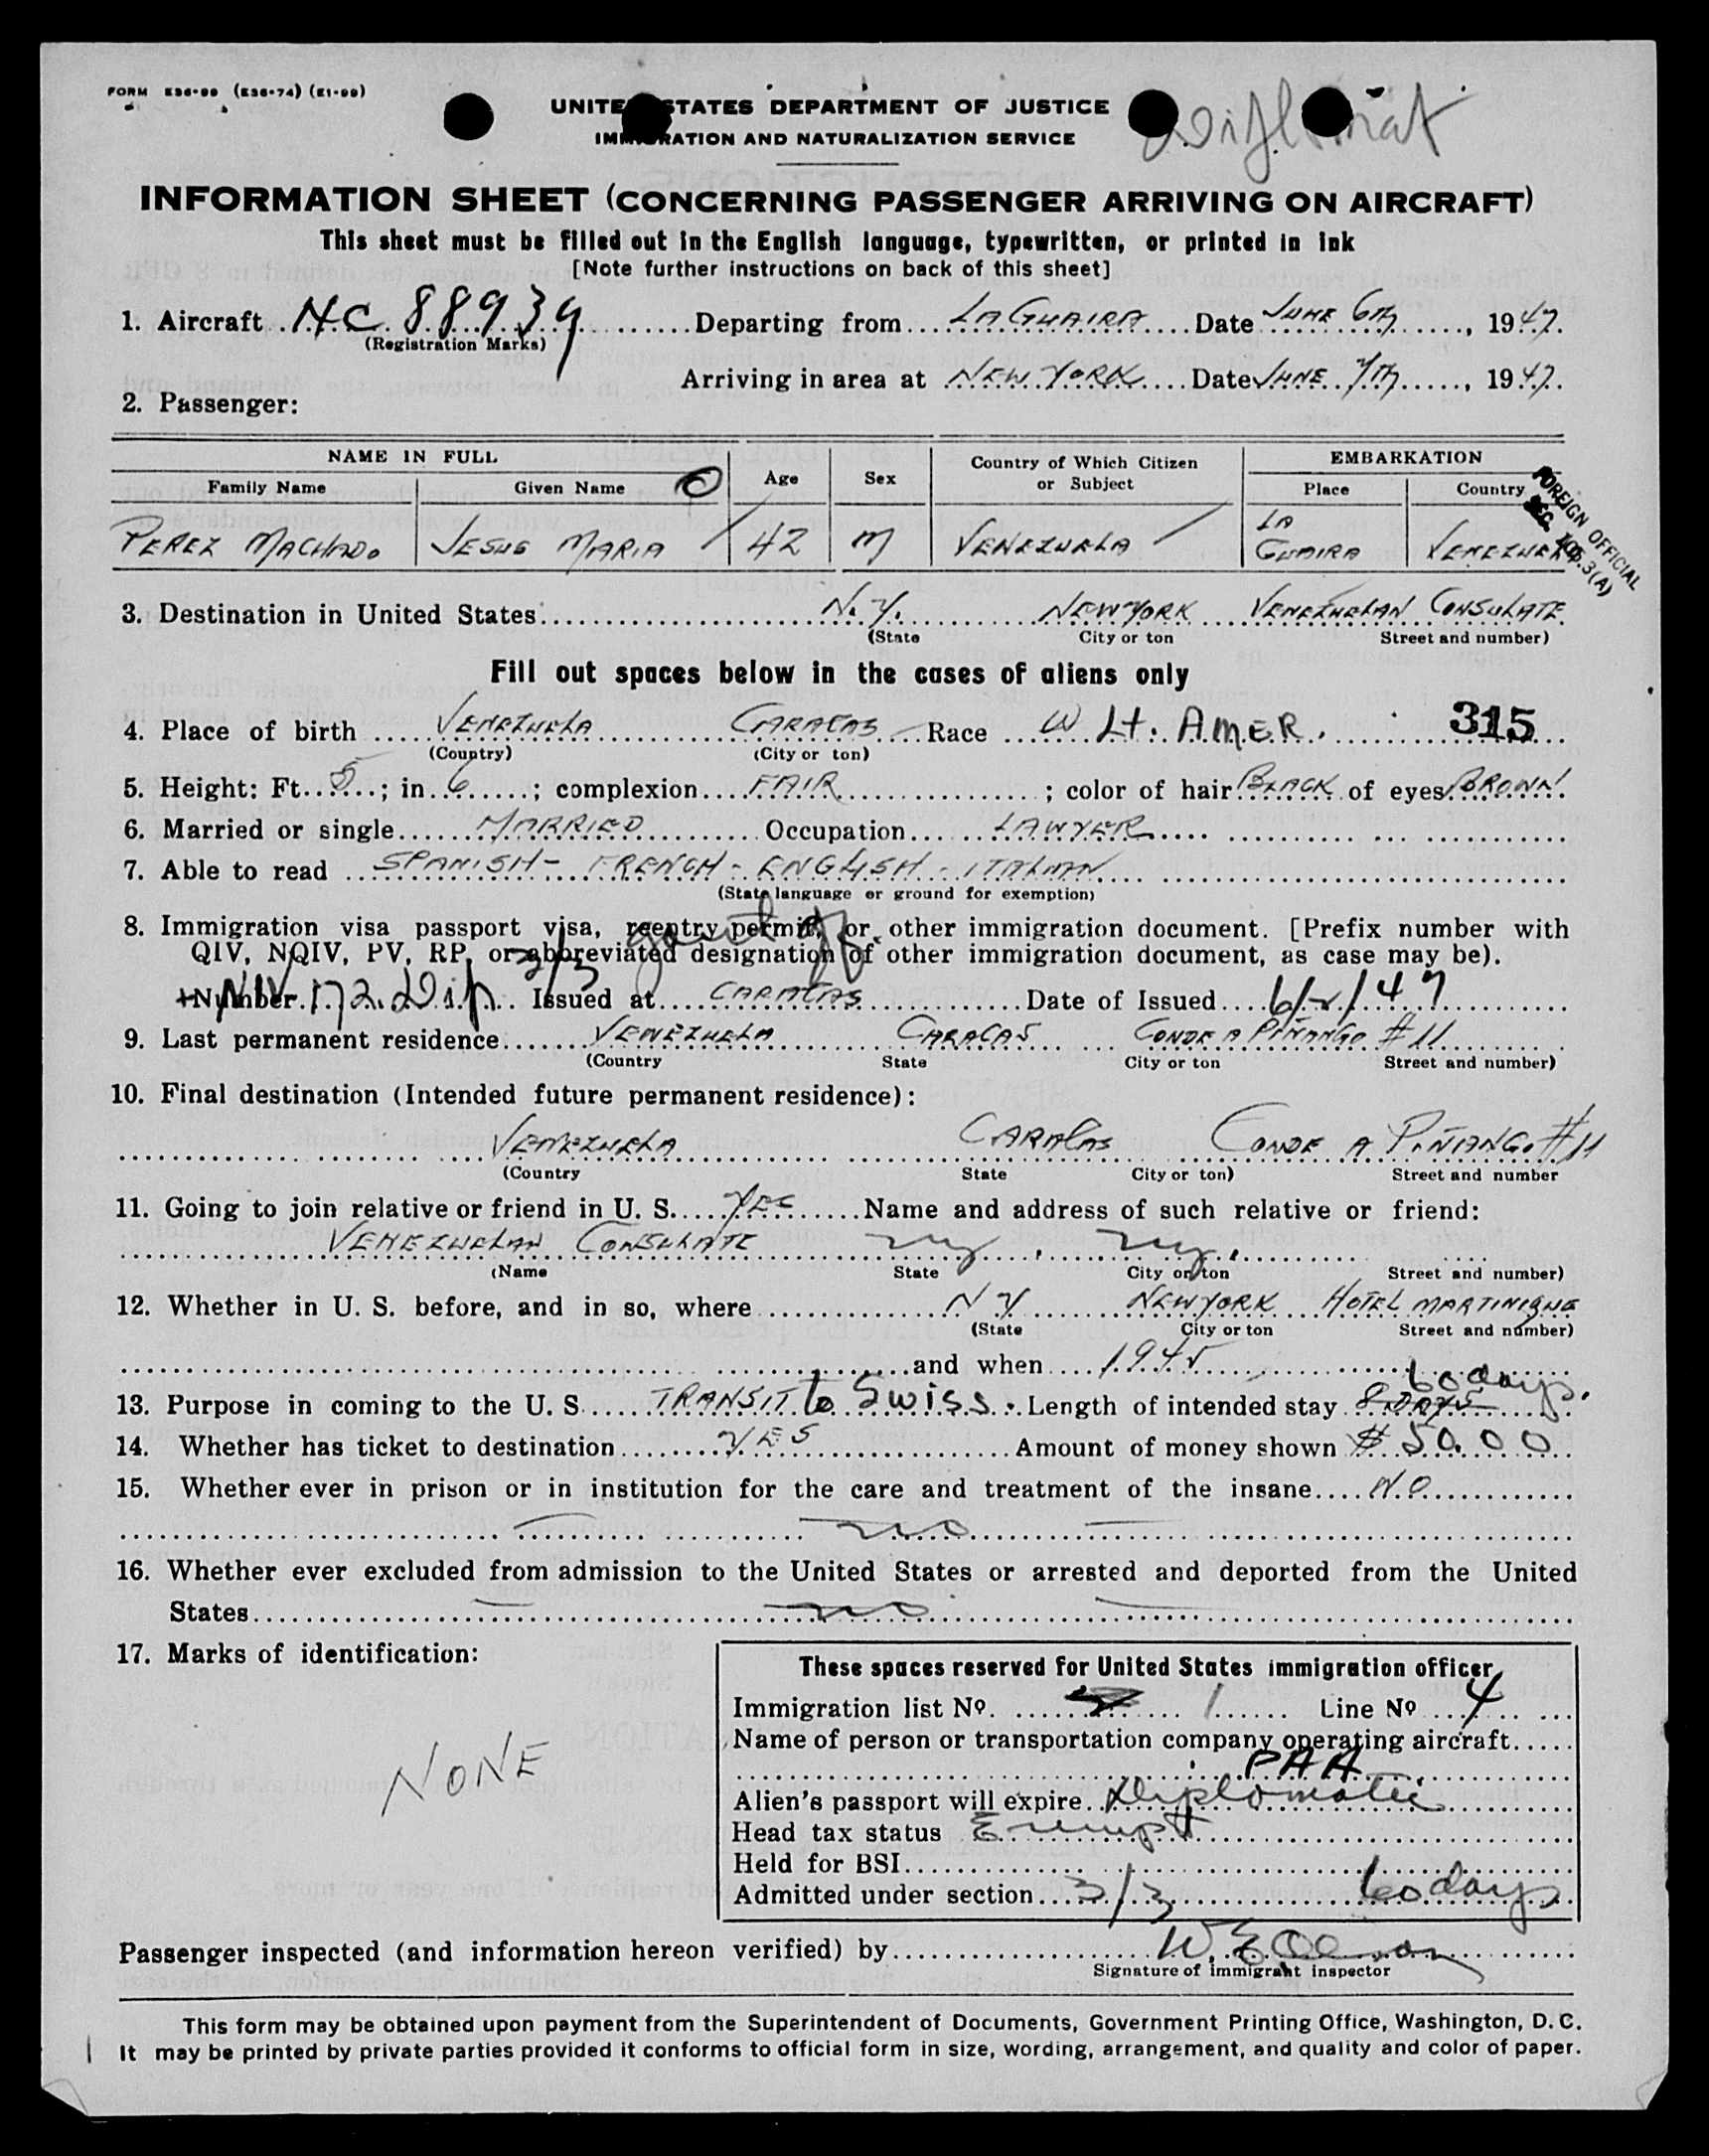 FORM (E36-74) (E1-99)
UNITE STATES DEPARTMENT OF JUSTICE
IMMIGRATION AND NATURALIZATION SERVICE
INFORMATION SHEET (CONCERNING PASSENGER ARRIVING ON AIRCRAFT)
This sheet must be filled out in the English language, typewritten, or printed in ink
[Note further instructions on back of this sheet]
1. Aircraft NC 88939 Departing from LA GUAIRA Date JUNE 6TH, 1947.
(Registration Marks)
Arriving in area at NEW YORK Date JUNE 7TH, 1947.
2. Passenger:
NAME IN FULL
Family Name Given Name Age Sex Country of Which Citizen or Subject EMBARKATION
Place Country
FOREIGN OFFICIAL
SEC. 3(A)
PEREZ MACHADO JESUS MARIA 42 M VENEZUELA LA GUAIRA VENEZUELA
3. Destination in United States N.Y. NEW YORK VENEZUELAN CONSULATE
(State City or ton Street and number)
Fill out spaces below in the cases of aliens only
4. Place of birth VENEZUELA CARACAS Race W Lt. AMER. 315
(Country) (City or ton)
5. Height: Ft. 5; in. 6; complexion FAIR; color of hair BLACK of eyes BROWN.
6. Married or single MARRIED Occupation LAWYER
7. Able to read SPANISH - FRENCH - ENGLISH - ITALIAN
(State language or ground for exemption)
8. Immigration visa passport visa, reentry permit, or other immigration document. [Prefix number with
QIV, NQIV, PV, RP, or abbreviated designation of other immigration document, as case may be).
3/3
Number NIV 172 Dip Issued at CARACAS Date of Issued 6/2/47
9. Last permanent residence VENEZUELA CARACAS CONDE A PIÑANGO #11
(Country State City or ton Street and number)
10. Final destination (Intended future permanent residence):
VENEZUELA CARACAS CONDE A PIÑANGO #11
(Country State City or ton) Street and number
11. Going to join relative or friend in U. S. YES Name and address of such relative or friend:
VENEZUELAN CONSULATE ny, ny.
(Name State City or ton Street and number)
12. Whether in U. S. before, and in so, where NY NEW YORK HOTEL MARTINIQUE
(State City or ton Street and number)
and when 1945
60 days.
13. Purpose in coming to the U. S. TRANSIT to Swiss. Length of intended stay 8 DAYS
14. Whether has ticket to destination YES Amount of money shown $50.00
15. Whether ever in prison or in institution for the care and treatment of the insane NO
no
16. Whether ever excluded from admission to the United States or arrested and deported from the United
States no
17. Marks of identification:
NONE
These spaces reserved for United States immigration officer
Immigration list No. 1 Line No 4
Name of person or transportation company operating aircraft
PAA
Alien's passport will expire Diplomatic
Head tax status Exempt
Held for BSI
Admitted under section 3/3 60 days
Passenger inspected (and information hereon verified) by
Signature of immigrant inspector
This form may be obtained upon payment from the Superintendent of Documents, Government Printing Office, Washington, D. C.
It may be printed by private parties provided it conforms to official form in size, wording, arrangement, and quality and color of paper.